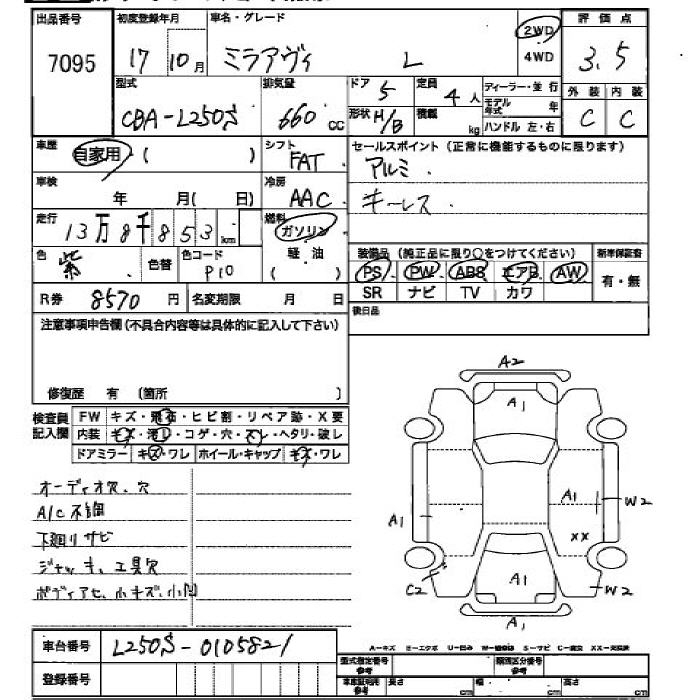 出品番号 初度登録年月 車名・グレード 2WD 評価点
7095 17 10月 ミラアヴィ L 4WD 3.5
型式 排気量 ドア 5 定員 4人 ディーラー・並行 外装 内装
CBA-L250S 660cc 形状 H/B 積載 kg モデル年式 年 C C
ハンドル 左・右
車歴 自家用 ( ) シフト FAT セールスポイント(正常に機能するものに限ります)
アルミ
車検 年 月( 日) 冷房 AAC キーレス
走行 13万8千853km 燃料 ガソリン
軽油
( )
色 紫 色替 色コード P10 装備品(純正品に限り○をつけてください) 新車保証書
PS PW ABS エアB AW 有・無
R券 8570円 名変期限 月 日 SR ナビ TV カワ
後日品
注意事項申告欄(不具合内容等は具体的に記入して下さい)
修復歴 有 (箇所 )
検査員記入欄 FW キズ・飛石・ヒビ割・リペア跡・X要
内装 キズ・汚レ・コゲ・穴・スレ・ヘタリ・破レ
ドアミラー キズ・ワレ ホイール・キャップ キズ・ワレ
オーディオ欠、穴
A/C不調
下廻りサビ
ジャッキ、工具欠
ボディアセ、小キズ、小凹
A2
A1
A1 W2
A1
XX
A1
C2 W2
A1
車台番号 L250S-0105821
登録番号
A-キズ E-エクボ U-凹み W-補修跡 S-サビ C-腐食 XX-交換済
型式指定番号 参考 類別区分番号 参考
車庫証明用 参考 長さ cm 幅 cm 高さ cm